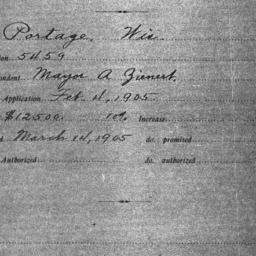 Portage, Wis.
5459
Mayor A Zienert.
Application Feb 4, 1905.
$12500. 10% Increase
March 14, 1905 do. promised
Authorized do. authorized